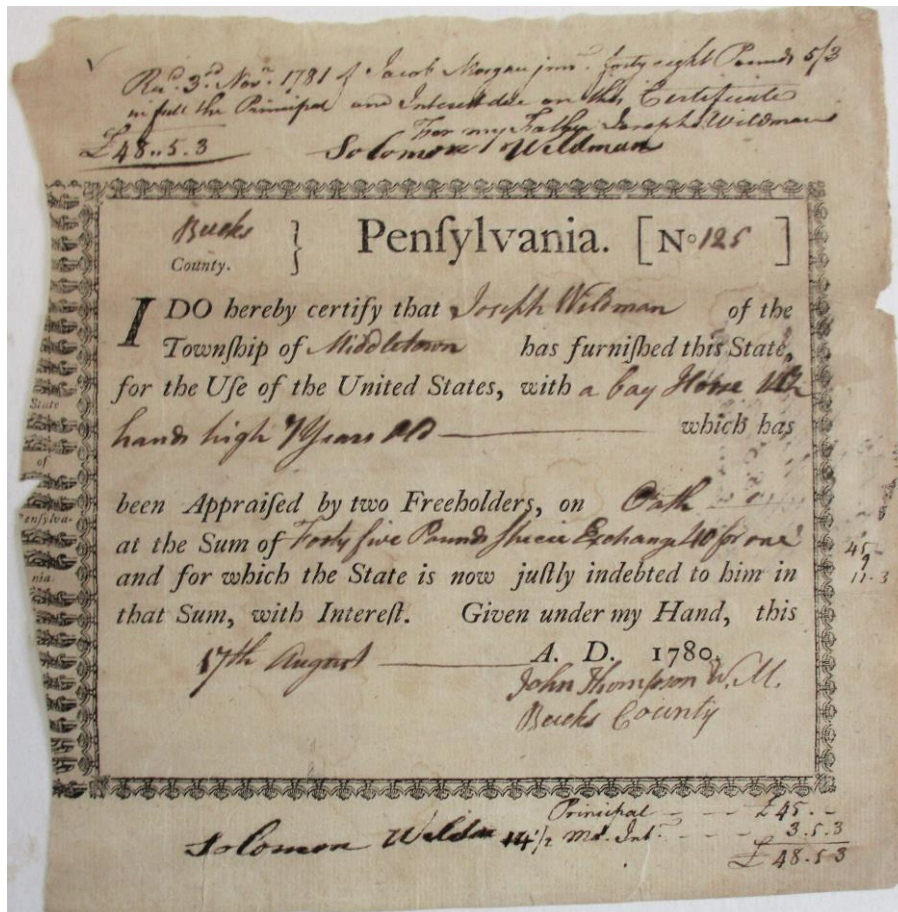 Recd. 3rd. Novr. 1781 of Jacob Morgan junr. forty eight Pounds 5/3
in full the Principal and Interest due on this Certificate
For my Father Joseph Wildman
£48..5.3 Solomon Wildman
Bucks
County. } Penſylvania. [No 125 ]
I DO hereby certify that Joseph Wildman of the
Townſhip of Middletown has furniſhed this State,
for the Uſe of the United States, with a bay Horse
hands high 7 Years old which has
been Appraiſed by two Freeholders, on Oath
at the Sum of Forty five Pounds Specie Exchange 40 for one
and for which the State is now juſtly indebted to him in
that Sum, with Intereſt. Given under my Hand, this
17th August A. D. 1780.
John Thompson W. M.
Bucks County
State
of
enſylva-
nia.
45
9
11.3
Prinipal £45..
Solomon Wildm 14 1/2 Md. Int. 3.5.3
£48.5 3